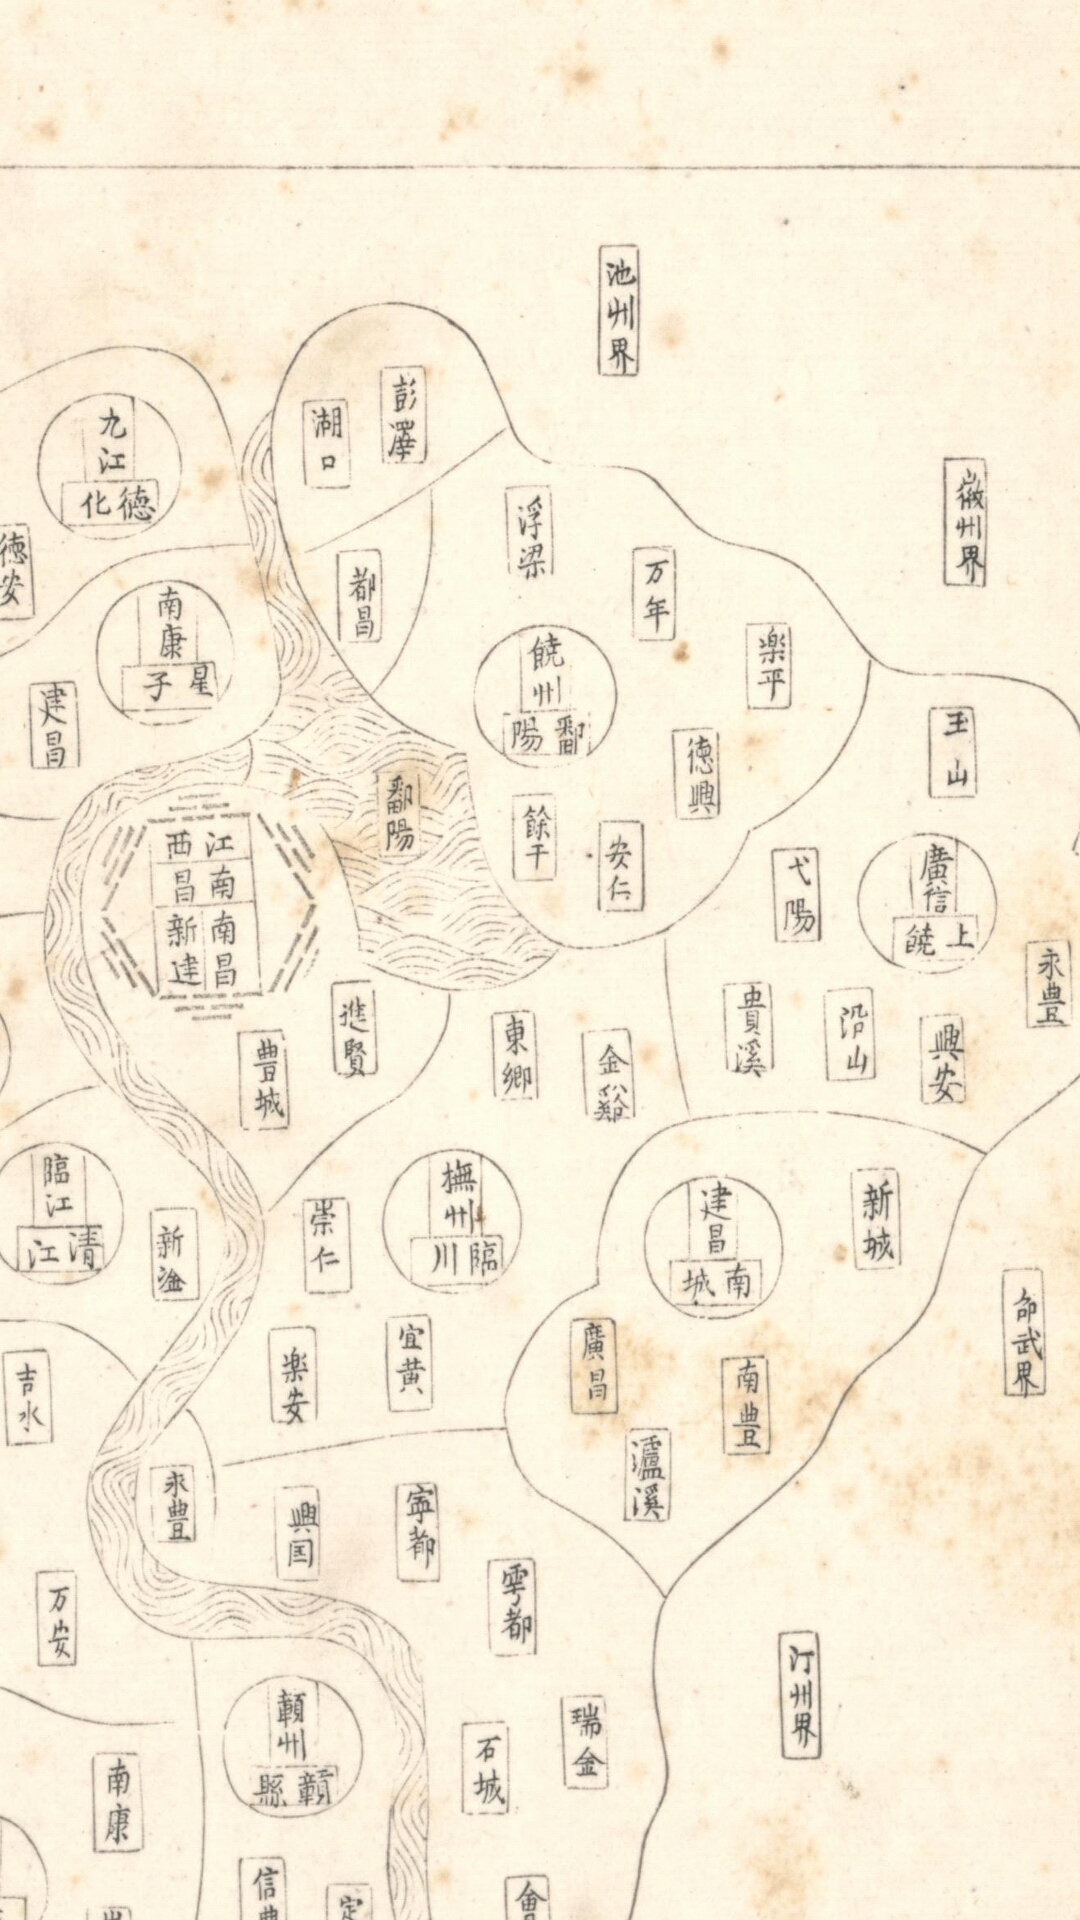 池州界
徽州界
彭澤
湖口
九江
德化
德安
浮梁
都昌
万年
南康
星子
楽平
饒州
鄱陽
建昌
玉山
德興
鄱陽
餘干
安仁
弋陽
廣信
上饒
江西
南昌
南昌
新建
永豊
進賢
豊城
東郷
金谿
貴溪
沿山
興安
臨江
清江
新淦
崇仁
撫州
臨川
建昌
南城
新城
邵武界
吉水
楽安
宜黄
廣昌
南豊
瀘溪
永豊
興国
寧都
雩都
万安
汀州界
贛州
贛縣
石城
瑞金
南康
信豊
定
會